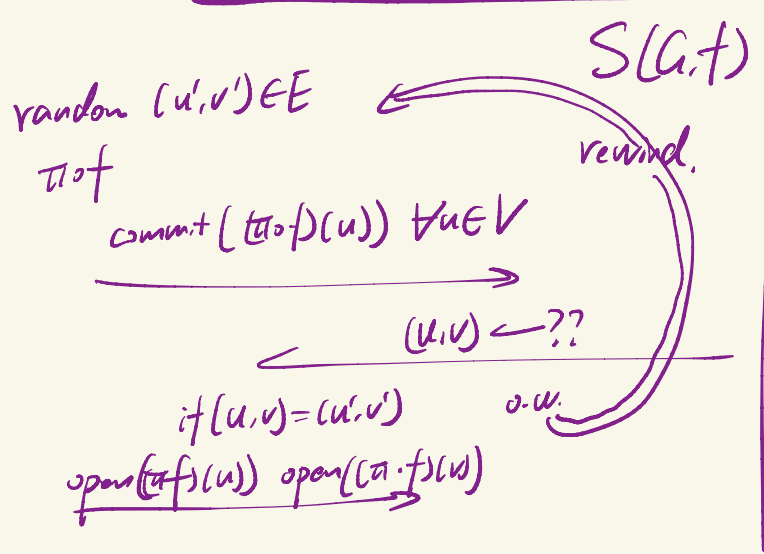 S(G,f)
random (u',v')∈E
rewind.
π∘f
commit((π∘f)(u)) ∀u∈V
(u,v) ← ??
if (u,v)=(u',v')
o.w.
open((πf)(u)) open((π·f)(v))